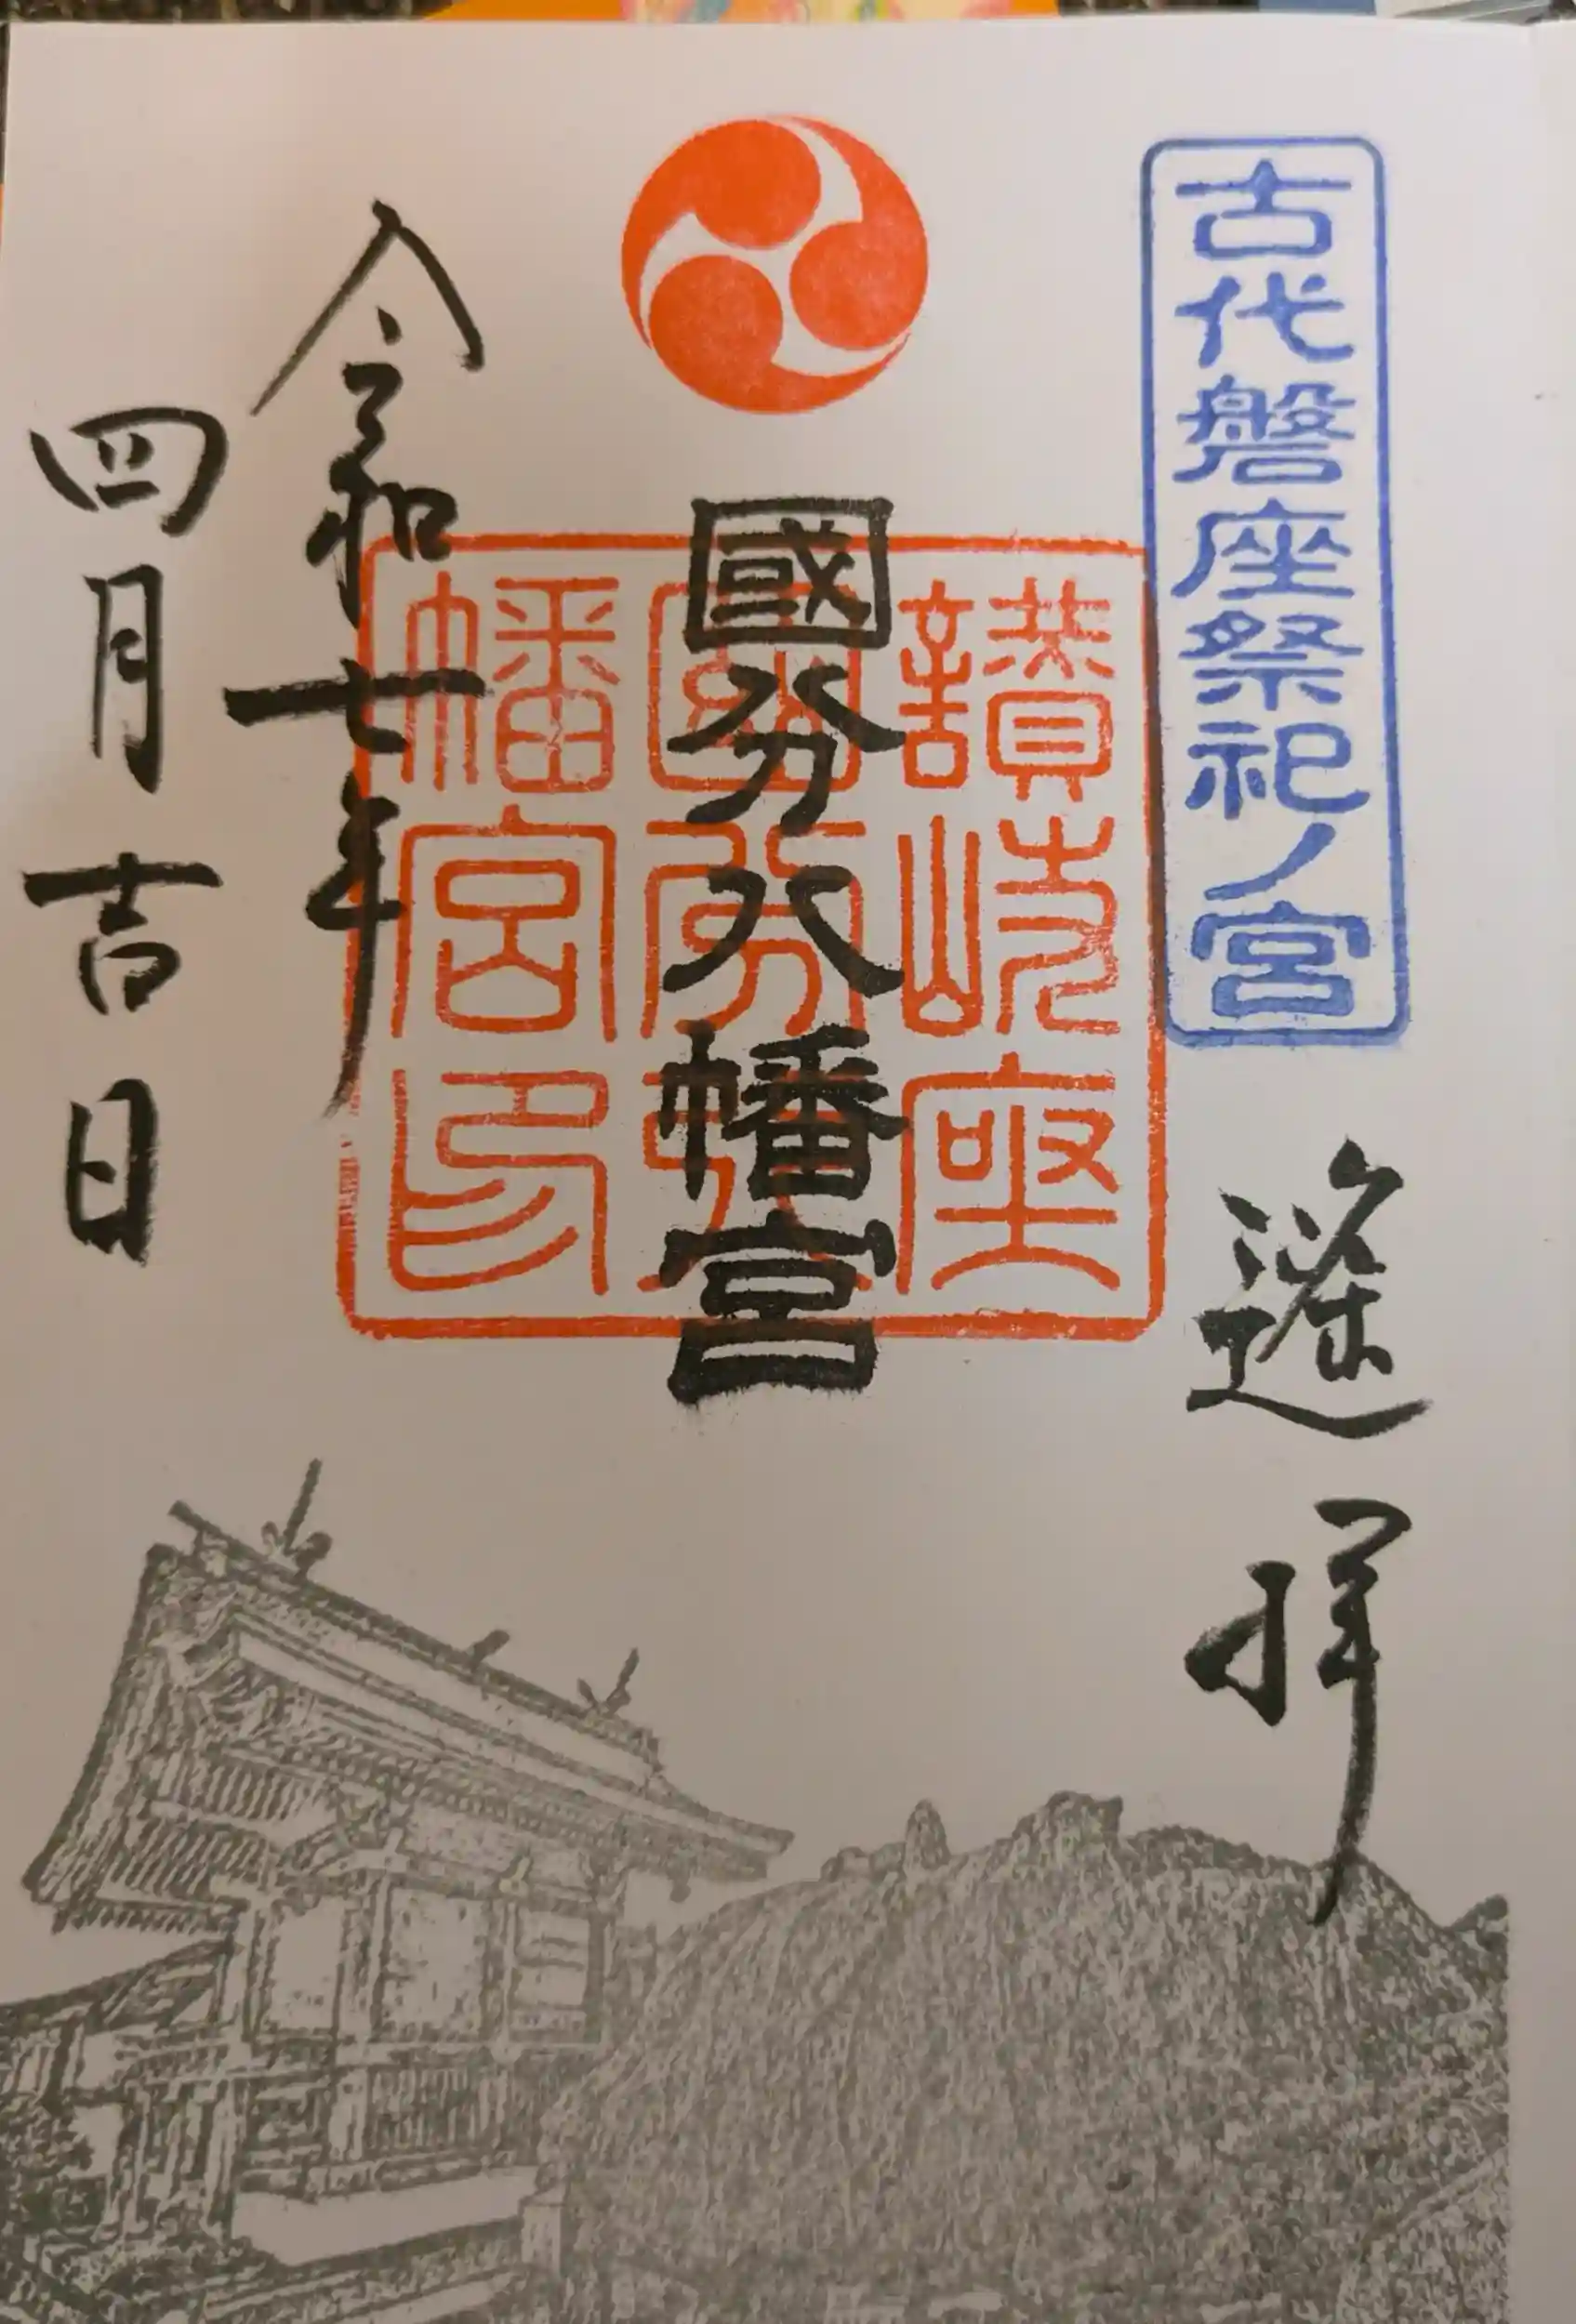 古代磐座祭祀ノ宮
遥拝
國分八幡宮
讃岐座
國分八
幡宮印
令和七年
四月吉日